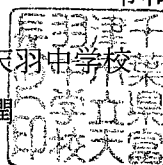 天羽中学校
潤
千葉県富
津市立天
羽中学校